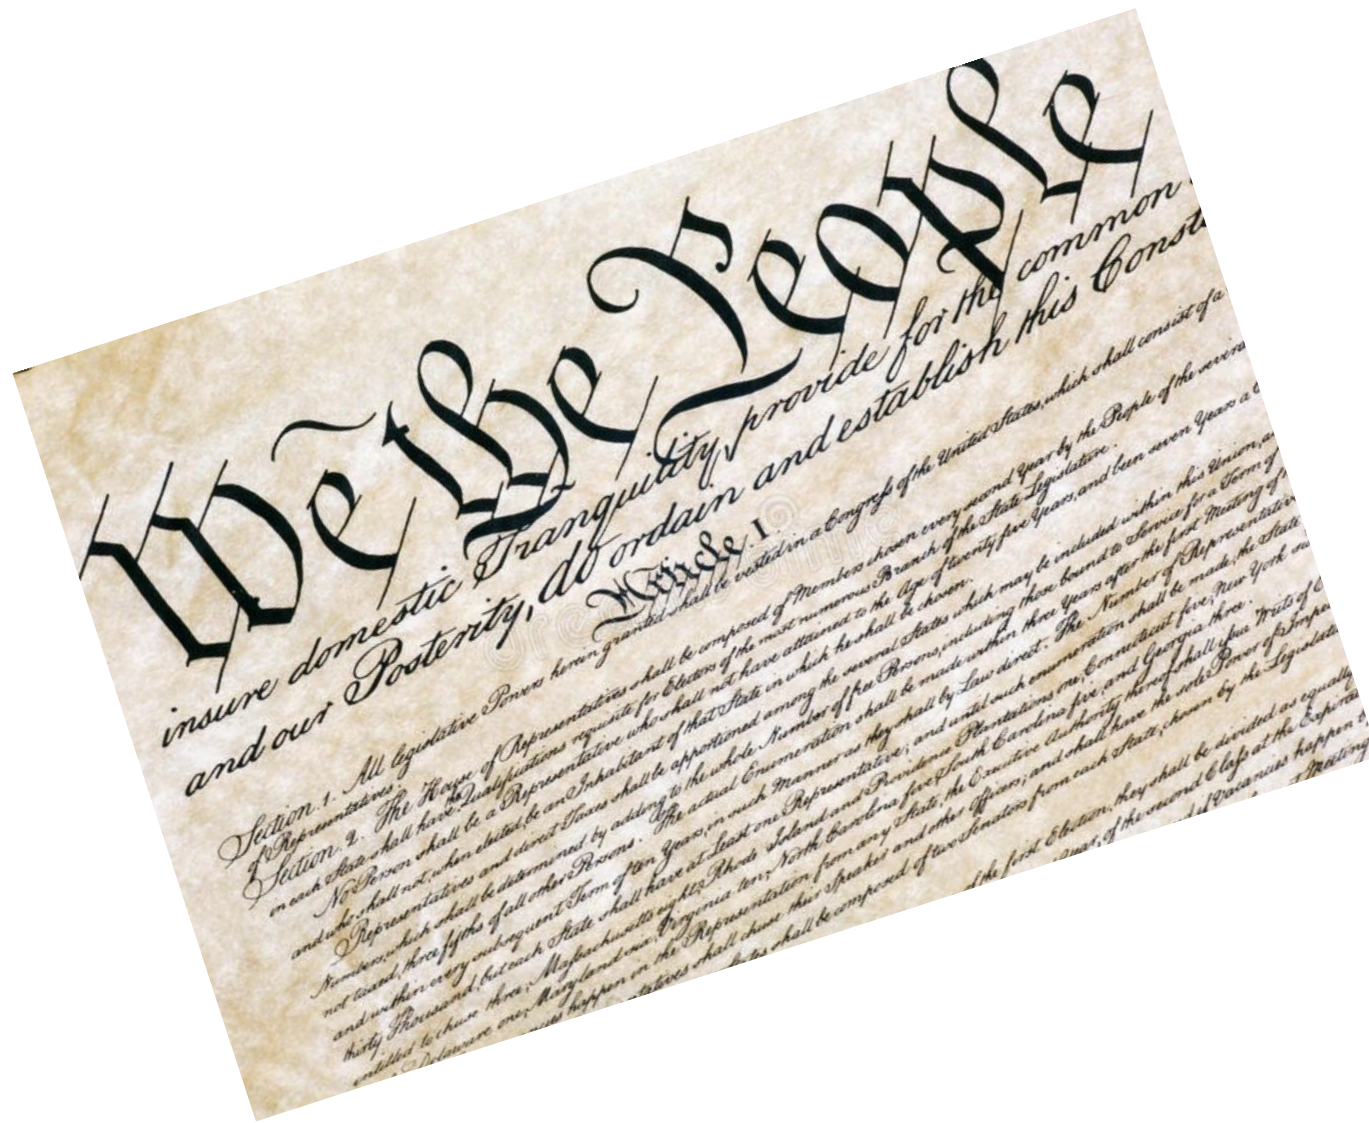 We the People
insure domestic Tranquility, provide for the common
and our Posterity, do ordain and establish this Const
Article I.
Section. 1. All legislative Powers herein granted shall be vested in a Congress of the United States, which shall consist of a
of Representatives.
Section. 2. The House of Representatives shall be composed of Members chosen every second Year by the People of the several
in each State shall have the Qualifications requisite for Electors of the most numerous Branch of the State Legislature.
No Person shall be a Representative who shall not have attained to the Age of twenty five Years, and been seven Years a C
and who shall not, when elected, be an Inhabitant of that State in which he shall be chosen.
Representatives and direct Taxes shall be apportioned among the several States which may be included within this Union, a
Numbers, which shall be determined by adding to the whole Number of free Persons, including those bound to Service for a Term of
not taxed, three fifths of all other Persons. The actual Enumeration shall be made within three Years after the first Meeting of
and within every subsequent Term of ten Years, in such Manner as they shall by Law direct. The Number of Representatives
thirty Thousand, but each State shall have at Least one Representative; and until such enumeration shall be made, the State
entitled to chuse three, Massachusetts eight, Rhode Island and Providence Plantations one, Connecticut five, New York
Delaware one, Maryland six, Virginia ten, North Carolina five, South Carolina five, and Georgia three.
happen in the Representation from any State, the Executive Authority thereof shall issue Writs of
tatives shall chuse their Speaker and other Officers; and shall have the sole Power of Impe
shall be composed of two Senators from each State, chosen by the Legislat
of the first Election, they shall be divided as equally
Year, of the second Class at the Expira
Vacancies happen
Meeting